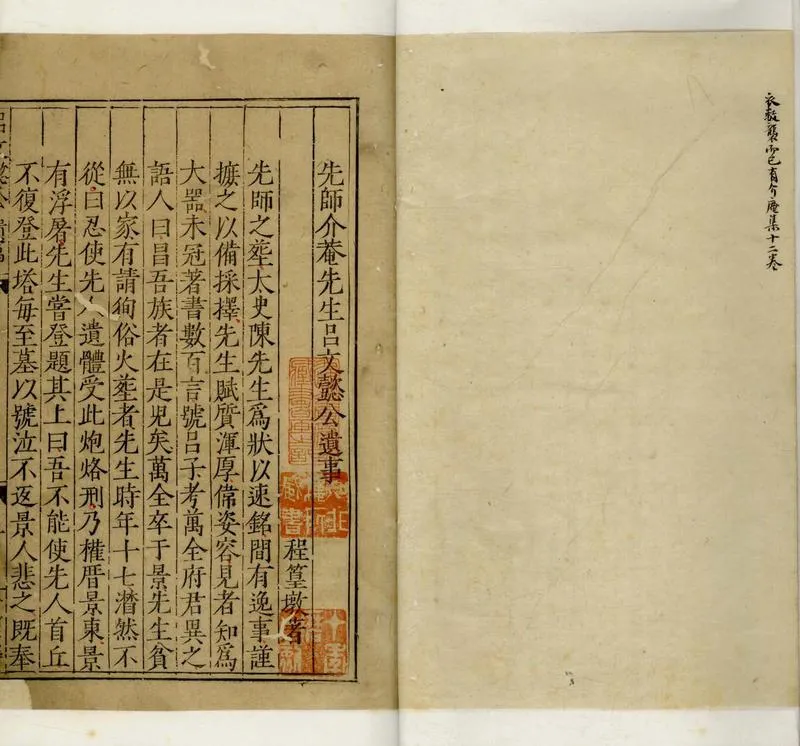 先師介菴先生呂文懿公遺事
程篁墩著
先師之葬太史陳先生爲狀以速銘間有逸事謹
摭之以備採擇先生賦質渾厚偉姿容見者知爲
大器未冠著書數百言號呂子考萬全府君異之
語人曰昌吾族者在是児矣萬全卒于景先生貧
無以家有請狥俗火葬者先生時年十七潸然不
從曰忍使先人遺體受此炮烙刑乃權厝景東景
有浮屠先生嘗登題其上曰吾不能使先人首丘
不復登此塔每至墓以號泣不返景人悲之既奉
介庵集十二卷